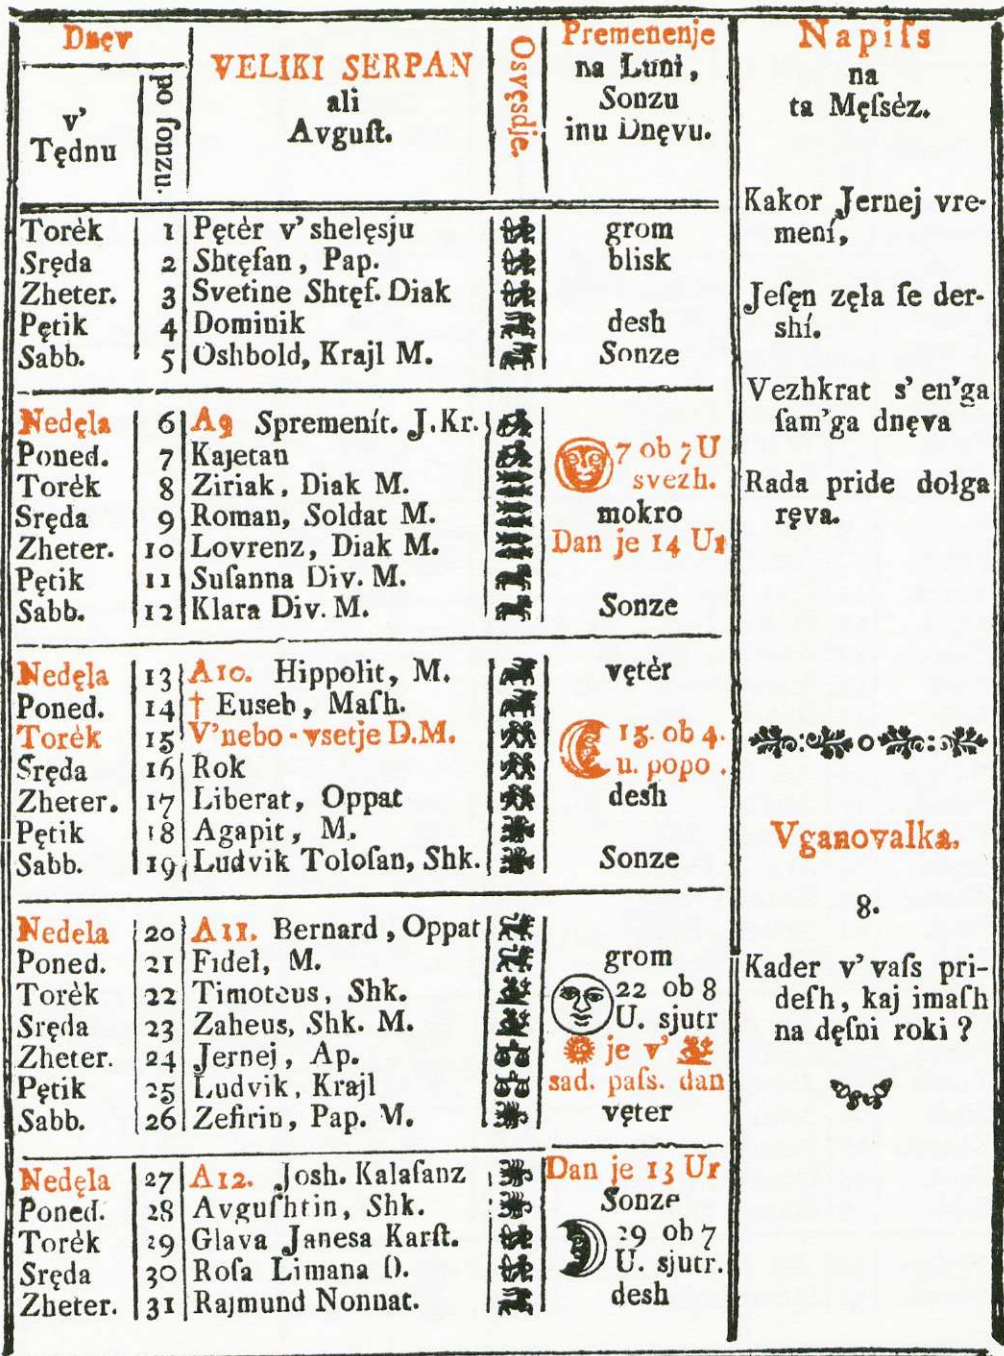 Dnęv
v'
Tędnu
po ſonzu.
VELIKI SERPAN
ali
Avguſt.
Osvęsdje.
Premenenje
na Łuni,
Sonzu
inu Dnęvu.
Napiſs
na
ta Męſsèz.
Torèk 1 Pętèr v' shelęsju grom
Sręda 2 Shtęfan, Pap. blisk
Zheter. 3 Svetine Shtęf. Diak
Pętik 4 Dominik desh
Sabb. 5 Oshbold, Krajl M. Sonze
Nedęla 6 A9 Spremenít. J. Kr.
Poned. 7 Kajetan 7 ob 7 U
Torèk 8 Ziriak, Diak M. svezh.
Sręda 9 Roman, Soldat M. mokro
Zheter. 10 Lovrenz, Diak M. Dan je 14 Ur
Pętik 11 Suſanna Div. M.
Sabb. 12 Klara Div. M. Sonze
Nedęla 13 A10. Hippolit, M. vętèr
Poned. 14 † Euseb, Maſh.
Torèk 15 V'nebo-vsetje D.M. 15. ob 4.
Sręda 16 Rok u. popo.
Zheter. 17 Liberat, Oppat desh
Pętik 18 Agapit, M.
Sabb. 19 Ludvik Toloſan, Shk. Sonze
Nedela 20 A11. Bernard, Oppat
Poned. 21 Fidel, M. grom
Torèk 22 Timoteus, Shk. 22 ob 8
Sręda 23 Zaheus, Shk. M. U. sjutr
Zheter. 24 Jernej, Ap. je v'
Pętik 25 Ludvik, Krajl sad. paſs. dan
Sabb. 26 Zefirin, Pap. M. vęter
Nedęla 27 A12. Josh. Kalaſanz Dan je 13 Ur
Poned. 28 Avguſhtin, Shk. Sonze
Torèk 29 Glava Janesa Karſt. 29 ob 7
Sręda 30 Roſa Limana D. U. sjutr.
Zheter. 31 Rajmund Nonnat. desh
Kakor Jernej vre-
mení,
Jeſęn zęla ſe der-
shí.
Vezhkrat s' en'ga
ſam'ga dnęva
Rada pride dołga
ręva.
Vganovalka.
8.
Kader v' vaſs pri-
deſh, kaj imaſh
na dęſni roki?